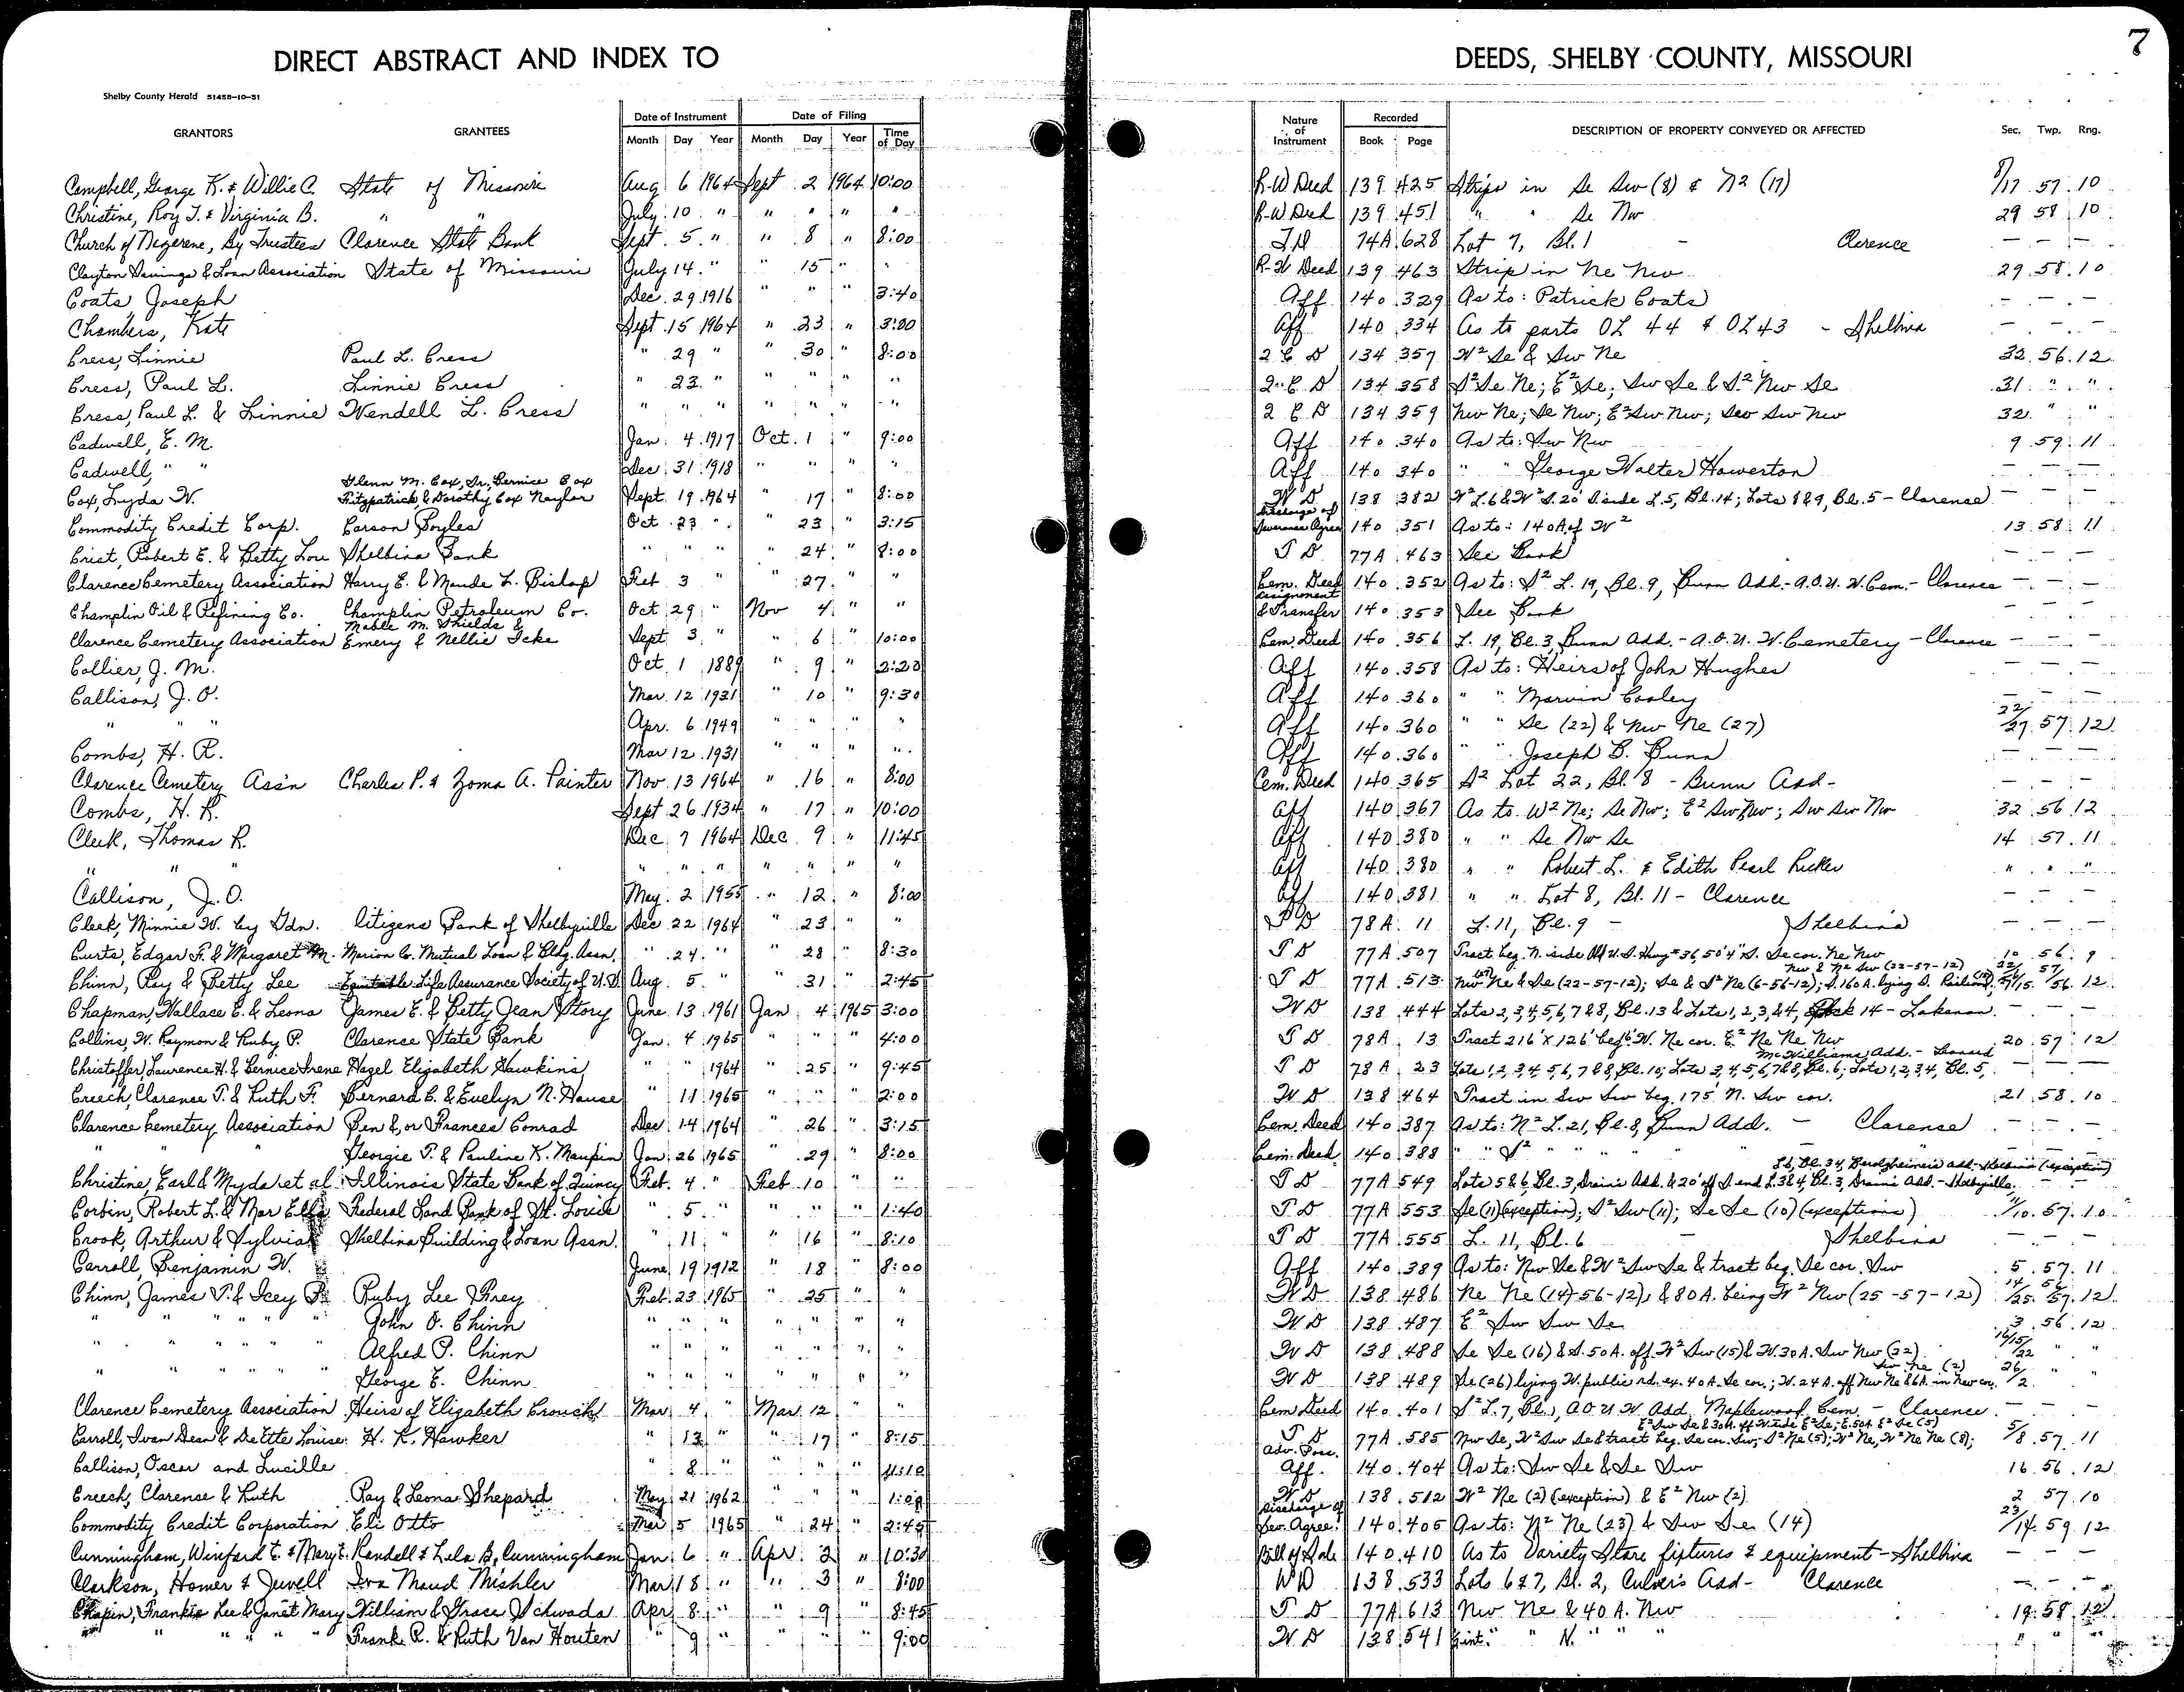 7
DIRECT ABSTRACT AND INDEX TO DEEDS, SHELBY COUNTY, MISSOURI
Shelby County Herald 51458-10-51
GRANTORS GRANTEES Date of Instrument Month Day Year Date of Filing Month Day Year Time of Day Nature of Instrument Recorded Book Page DESCRIPTION OF PROPERTY CONVEYED OR AFFECTED Sec. Twp. Rng.
Campbell, George K. & Willie C. State of Missouri Aug 6 1964 Sept 2 1964 10:00 R-W Deed 139 425 Strips in Se Sw (8) & N2 (17) 8/17 57 10
Christine, Roy T. & Virginia B. " " July 10 " " " " " R-W Deed 139 451 " " Se Nw 29 58 10
Church of Nazerene, By Trustees Clarence State Bank Sept. 5 " " 8 " 8:00 T D 74A 628 Lot 7, Bl. 1 - Clarence — — —
Clayton Savings & Loan Association State of Missouri July 14 " " 15 " " R-W Deed 139 463 Strip in Ne Nw 29 58 10
Coats, Joseph Dec. 29 1916 " " " 3:40 Aff 140 329 As to: Patrick Coats — — —
Chambers, Kate Sept. 15 1964 " 23 " 3:00 Aff 140 334 As to parts OL 44 & OL 43 - Shelbina — — —
Cress, Linnie Paul L. Cress " 29 " " 30 " 8:00 2 C D 134 357 W² Se & Sw Ne 32 56 12
Cress, Paul L. Linnie Cress " 23 " " " " " 2 C D 134 358 S² Se Ne; E² Se; Sw Se & S² Nw Se 31 " "
Cress, Paul L. & Linnie Wendell L. Cress " " " " " " " 2 C D 134 359 Nw Ne; Se Nw; E² Sw Nw; Sw Sw Nw 32 " "
Cadwell, E. M. Jan. 4 1917 Oct. 1 " 9:00 Aff 140 340 As to: Sw Nw 9 59 11
Cadwell, " " Dec. 31 1918 " " " " Aff 140 340 " " George Walter Howerton — — —
Cox, Lyda W. Glenn M. Cox, Sr. Bernice Cox Fitzpatrick & Dorothy Cox Naylor Sept. 19 1964 " 17 " 8:00 W D 138 382 W² L. 6 & W² S. 20' Side L. 5, Bl. 14; Lots 8 & 9, Bl. 5 - Clarence — — —
Commodity Credit Corp. Carson Boyles Oct 23 " " 23 " 3:15 Discharge of Severance Agree 140 351 As to: 140 A. of W² 13 58 11
Crist, Robert E. & Betty Lou Shelbina Bank " " " " 24 " 8:00 T D 77A 463 See Book — — —
Clarence Cemetery Association Harry E. & Maude L. Bishop Feb. 3 " " 27 " " Cem. Deed 140 352 As to: S² L. 19, Bl. 9, Bunn Add.- A.O.U.W. Cem.- Clarence — — —
Champlin Oil & Refining Co. Champlin Petroleum Co. Oct 29 " Nov 4 " " Assignment & Transfer 140 353 See Book — — —
Clarence Cemetery Association Mable M. Shields & Emery & Nellie Icke Sept. 3 " " 6 " 10:00 Cem. Deed 140 356 L. 19, Bl. 3, Bunn Add.- A.O.U.W. Cemetery - Clarence — — —
Collier, J. M. Oct. 1 1889 " 9 " 2:20 Aff 140 358 As to: Heirs of John Hughes — — —
Callison, J. O. Mar. 12 1931 " 10 " 9:30 Aff 140 360 " " Marvin Cooley — — —
" " " Apr. 6 1949 " " " " Aff 140 360 " " Se (22) & Nw Ne (27) 22/27 57 12
Combs, H. R. Mar 12 1931 " " " " Aff 140 360 " " Joseph B. Bunn — — —
Clarence Cemetery Ass'n Charles P. & Zoma A. Painter Nov. 13 1964 " 16 " 8:00 Cem. Deed 140 365 S² Lot 22, Bl. 8 - Bunn Add- — — —
Combs, H. R. Sept 26 1934 " 17 " 10:00 Aff 140 367 As to W² Ne; Se Nw; E² Sw Nw; Sw Sw Nw 32 56 12
Cleek, Thomas R. Dec 7 1964 Dec. 9 " 11:45 Aff 140 380 " " Se Nw Se 14 57 11
" " " " " " " " " " Aff 140 380 " " Robert L. & Edith Pearl Ricker " " "
Callison, J. O. May 2 1955 " 12 " 8:00 Aff 140 381 " " Lot 8, Bl. 11 - Clarence — — —
Cleek, Minnie W. by Gdn. Citizens Bank of Shelbyville Dec 22 1964 " 23 " " T D 78A 11 L. 11, Bl. 9 - Shelbina — — —
Curts, Edgar F. & Margaret M. Marion Co. Mutual Loan & Bldg. Assn. " 24 " " 28 " 8:30 T D 77A 507 Tract beg. N. side Old U.S. Hwy #36, 50'4" S. Se cor. Ne Nw 10 56 9
Chinn, Ray & Betty Lee Equitable Life Assurance Society of U.S. Aug. 5 " " 31 " 2:45 T D 77A 513 Nw Ne & Se (22-57-12); Se & S² Ne (6-56-12); S. 160 A. lying S. Railroad, Nw & Ne Sw (22-57-12) 12
Chapman, Wallace E. & Leona James E. & Betty Jean Story June 13 1961 Jan 4 1965 3:00 W D 138 444 Lots 2, 3, 4, 5, 6, 7 & 8, Bl. 13 & Lots 1, 2, 3, & 4, Block 14 - Lakenan — — —
Collins, W. Raymon & Ruby P. Clarence State Bank Jan. 4 1965 " " " 4:00 T D 78A 13 Tract 216' x 126' beg. W. Ne cor. E² Ne Ne Nw 20 57 12
Christoffer, Laurence H. & Bernice Irene Hazel Elizabeth Hawkins " " 1964 " 25 " 9:45 T D 78A 23 Lots 1, 2, 3, 4, 5, 6, 7 & 8, Bl. 10; Lots 3, 4, 5, 6, 7 & 8, Bl. 6; Lots 1, 2, 3, 4, Bl. 5, McWilliams Add. - Leonard — — —
Creech, Clarence T. & Ruth F. Bernard C. & Evelyn N. House " 11 1965 " " " 2:00 W D 138 464 Tract in Sw Sw beg. 175' N. Sw cor. 21 58 10
Clarence Cemetery Association Ben &/or Frances Conrad Dec. 14 1964 " 26 " 3:15 Cem. Deed 140 387 As to: N² L. 21, Bl. 8, Bunn Add. - Clarence — — —
" " " Georgie T. & Pauline K. Maupin Jan. 26 1965 " 29 " 8:00 Cem. Deed 140 388 " " S² " " " " "
Christine, Earl & Myda et al Illinois State Bank of Quincy Feb. 4 " Feb 10 " " T D 77A 549 Lots 5 & 6, Bl. 3, Drain's Add. & 20' off S. end L. 3 & 4, Bl. 3, Drain's Add. - Shelbyville, L. 6, Bl. 34, Berolzheimer's Add.- Shelbina (exception) — —
Corbin, Robert L. & Mar Ella Federal Land Bank of St. Louis " 5 " " " " 1:40 T D 77A 553 Se (11) (exception); S² Sw (11); Se Se (10) (exceptions) 11/10 57 10
Crook, Arthur & Sylvia Shelbina Building & Loan Assn. " 11 " " 16 " 8:10 T D 77A 555 L. 11, Bl. 6 - Shelbina — — —
Carroll, Benjamin W. June 19 1912 " 18 " 8:00 Aff 140 389 As to: Nw Se & W² Sw Se & tract beg. Se cor. Sw 5 57 11
Chinn, James T. & Icey P. Ruby Lee Frey Feb. 23 1965 " 25 " " W D 138 486 Ne Ne (14-56-12), & 80 A. being W² Nw (25-57-12) 14/25 56/57 12
" " " " John O. Chinn " " " " " " " W D 138 487 E² Sw Sw Se 3 56 12
" " " " Alfred P. Chinn " " " " " " " W D 138 488 Se Se (16) & S. 50 A. off W² Sw (15) & W. 30 A. Sw Nw (22) 16/15/22 " "
" " " " George E. Chinn " " " " " " " W D 138 489 Se (26) lying W. public rd. ex. 40 A. Se cor.; W. 24 A. off Nw Ne & 6 A. in Nw cor. Sw Ne (2) 26/2 " "
Clarence Cemetery Association Heirs of Elizabeth Crouch Mar. 4 " Mar. 12 " " Cem Deed 140 401 S² L. 7, Bl. 1, A.O.U.W. Add. Maplewood Cem. - Clarence — — —
Carroll, Ivan Dean & DeEtte Louise H. K. Hawker " 13 " " 17 " 8:15 T D 77A 585 Nw Se, W² Sw Se & tract beg. Se cor. Sw; S² Ne (5); W² Ne, W² Ne Ne (8); E² Sw Se & 30 A. off W. side E² Se; E. 50 A. E² Se (5) 5/8 57 11
Callison, Oscar and Lucille " 8 " " " " 11:10 Adv. Poss. Aff. 140 404 As to: Sw Se & Se Sw 16 56 12
Creech, Clarence & Ruth Ray & Leona Shepard May 21 1962 " " " 1:00 W D 138 512 W² Ne (2) (exception) & E² Nw (2) 2 57 10
Commodity Credit Corporation Eli Otto Mar 5 1965 " 24 " 2:45 Discharge of Sev. Agree. 140 405 As to: N² Ne (23) & Sw Se (14) 23/14 59 12
Cunningham, Winford E. & Mary E. Randall & Lela B. Cunningham Jan. 6 " Apr. 2 " 10:30 Bill of Sale 140 410 As to Variety Store fixtures & equipment - Shelbina — — —
Clarkson, Homer & Jewell Iva Maud Mishler Mar 18 " " 3 " 8:00 WD 138 533 Lots 6 & 7, Bl. 2, Culver's Add- Clarence — — —
Chapin, Frankie Lee & Janet Mary William & Grace Schwada Apr 8 " " 9 " 8:45 T D 77A 613 Nw Ne & 40 A. Nw 19 58 12
" " " " " Frank R. & Ruth Van Houten " 9 " " " " 9:00 W D 138 541 " " N. " " " " "